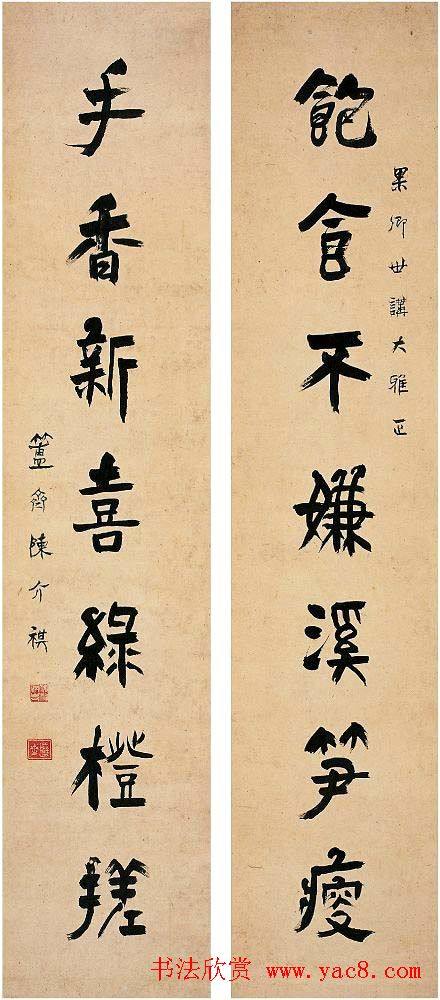 飽食不嫌溪笋瘦
果卿世講大雅正
手香新喜綠橙搓
簠齋陳介祺
书法欣赏 www.yac8.com